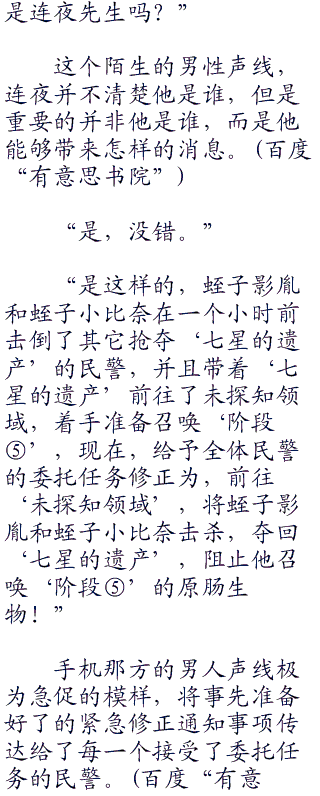 是连夜先生吗？”
这个陌生的男性声线，
连夜并不清楚他是谁，但是
重要的并非他是谁，而是他
能够带来怎样的消息。(百度
“有意思书院”)
“是，没错。”
“是这样的，蛭子影胤
和蛭子小比奈在一个小时前
击倒了其它抢夺‘七星的遗
产’的民警，并且带着‘七
星的遗产’前往了未探知领
域，着手准备召唤‘阶段
⑤’，现在，给予全体民警
的委托任务修正为，前往
‘未探知领域’，将蛭子影
胤和蛭子小比奈击杀，夺回
‘七星的遗产’，阻止他召
唤‘阶段⑤’的原肠生
物！”
手机那方的男人声线极
为急促的模样，将事先准备
好了的紧急修正通知事项传
达给了每一个接受了委托任
务的民警。(百度“有意